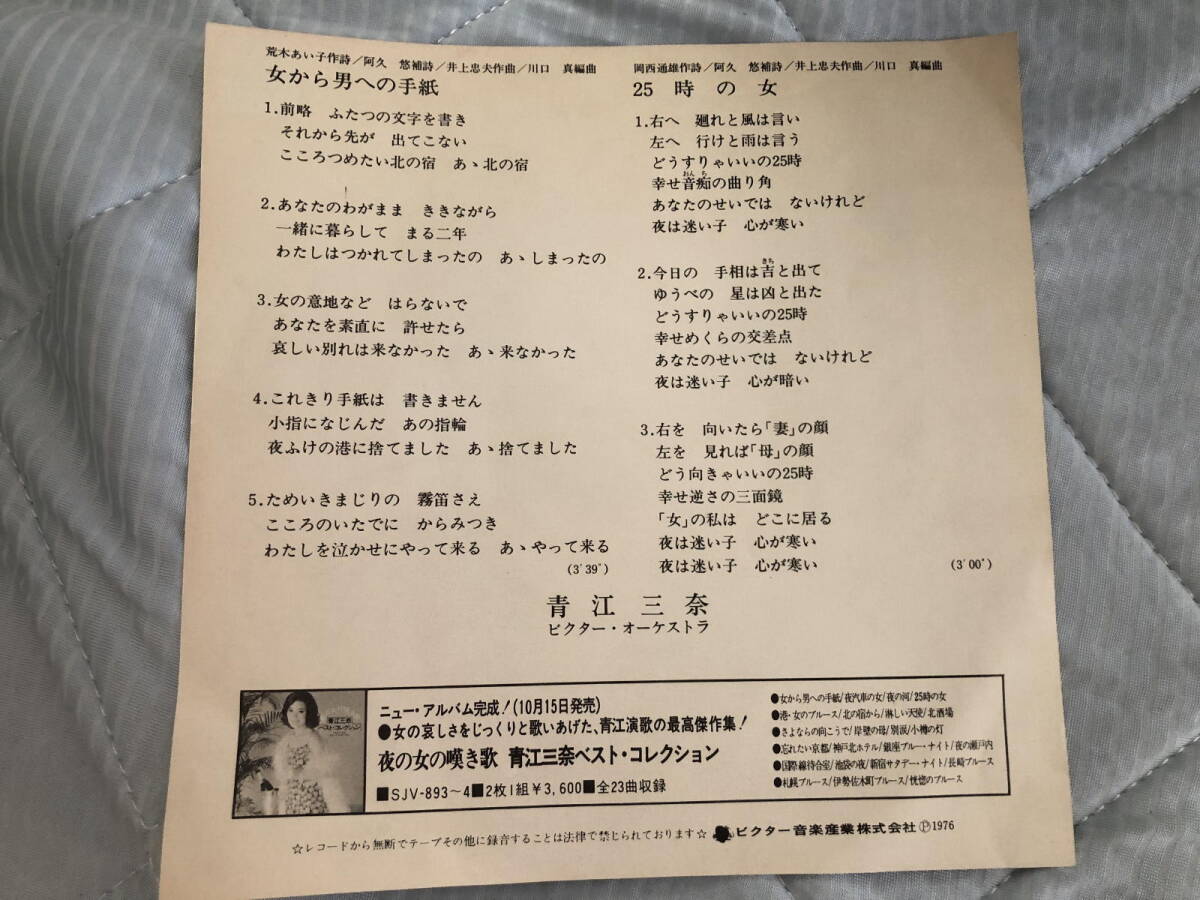 荒木あい子作詩／阿久　悠補詩／井上忠夫作曲／川口　真編曲
女から男への手紙
1.前略　ふたつの文字を書き
それから先が　出てこない
こころつめたい北の宿　あゝ北の宿
2.あなたのわがまま　ききながら
一緒に暮らして　まる二年
わたしはつかれてしまったの　あゝしまったの
3.女の意地など　はらないで
あなたを素直に　許せたら
哀しい別れは来なかった　あゝ来なかった
4.これきり手紙は　書きません
小指になじんだ　あの指輪
夜ふけの港に捨てました　あゝ捨てました
5.ためいきまじりの　霧笛さえ
こころのいたでに　からみつき
わたしを泣かせにやって来る　あゝやって来る
(3'39")
岡西通雄作詩／阿久　悠補詩／井上忠夫作曲／川口　真編曲
25　時　の　女
1.右へ　廻れと風は言い
左へ　行けと雨は言う
どうすりゃいいの25時
幸せ音痴の曲り角
おんち
あなたのせいでは　ないけれど
夜は迷い子　心が寒い
2.今日の　手相は吉と出て
きち
ゆうべの　星は凶と出た
どうすりゃいいの25時
幸せめくらの交差点
あなたのせいでは　ないけれど
夜は迷い子　心が暗い
3.右を　向いたら「妻」の顔
左を　見れば「母」の顔
どう向きゃいいの25時
幸せ逆さの三面鏡
「女」の私は　どこに居る
夜は迷い子　心が寒い
夜は迷い子　心が寒い
(3'00")
青　江　三　奈
ビクター・オーケストラ
青江三奈
ベスト・コレクション
ニュー・アルバム完成！(10月15日発売)
●女の哀しさをじっくりと歌いあげた、青江演歌の最高傑作集！
夜の女の嘆き歌　青江三奈ベスト・コレクション
■SJV-893～4■2枚1組￥3,600■全23曲収録
●女から男への手紙/夜汽車の女/夜の河/25時の女
●港・女のブルース/北の宿から/淋しい天使/北酒場
●さよならの向こうで/岸壁の母/別涙/小樽の灯
●忘れたい京都/神戸北ホテル/銀座ブルー・ナイト/夜の瀬戸内
●国際線待合室/池袋の夜/新宿サタデー・ナイト/長崎ブルース
●札幌ブルース/伊勢佐木町ブルース/恍惚のブルース
☆レコードから無断でテープその他に録音することは法律で禁じられております☆　ビクター音楽産業株式会社 Ⓟ1976